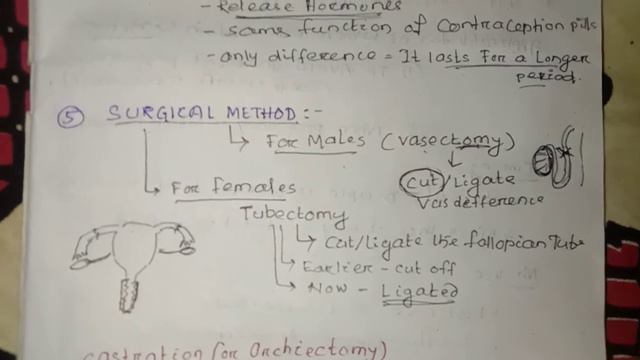 - Release Hormones
- same function of contraception pills
- only difference = It lasts For a Longer
period.
⑤ SURGICAL METHOD :-
↳ For Males (vasectomy)
↓
cut/Ligate
Vas defference
↳ For females
Tubectomy
↳ Cut/ligate the fallopian Tube
→ Earlier - cut off
→ Now - Ligated
castration (or Orchiectomy)